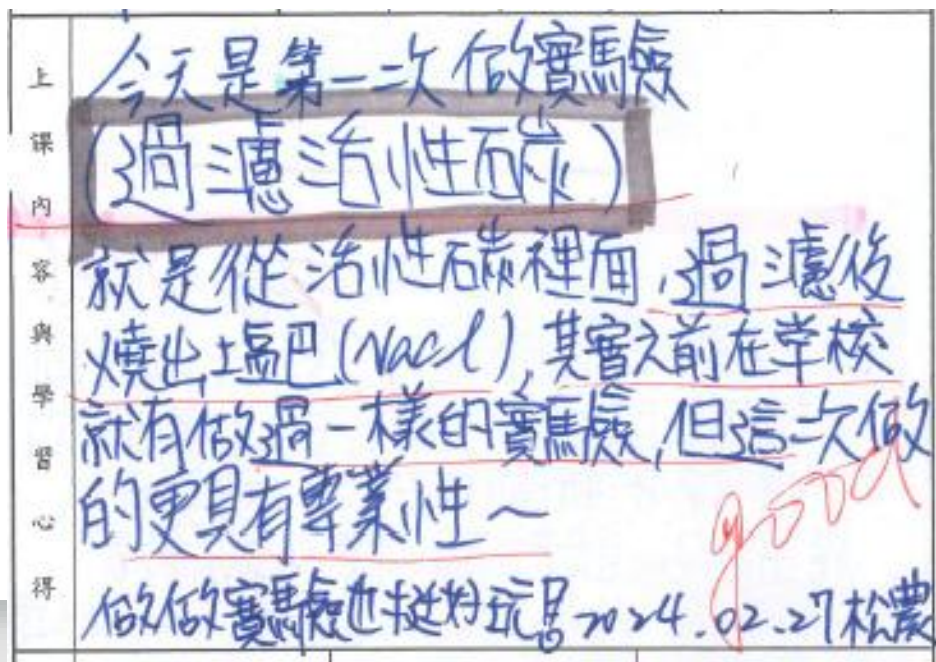 上課內容與學習心得
今天是第一次做實驗
(過濾活性碳)
就是從活性碳裡面,過濾後
燒出塩巴(Nacl),其實之前在学校
就有做過一樣的實驗,但這一次做
的更具有專業性～
good
做做實驗也挺好玩 2024.02.27松農